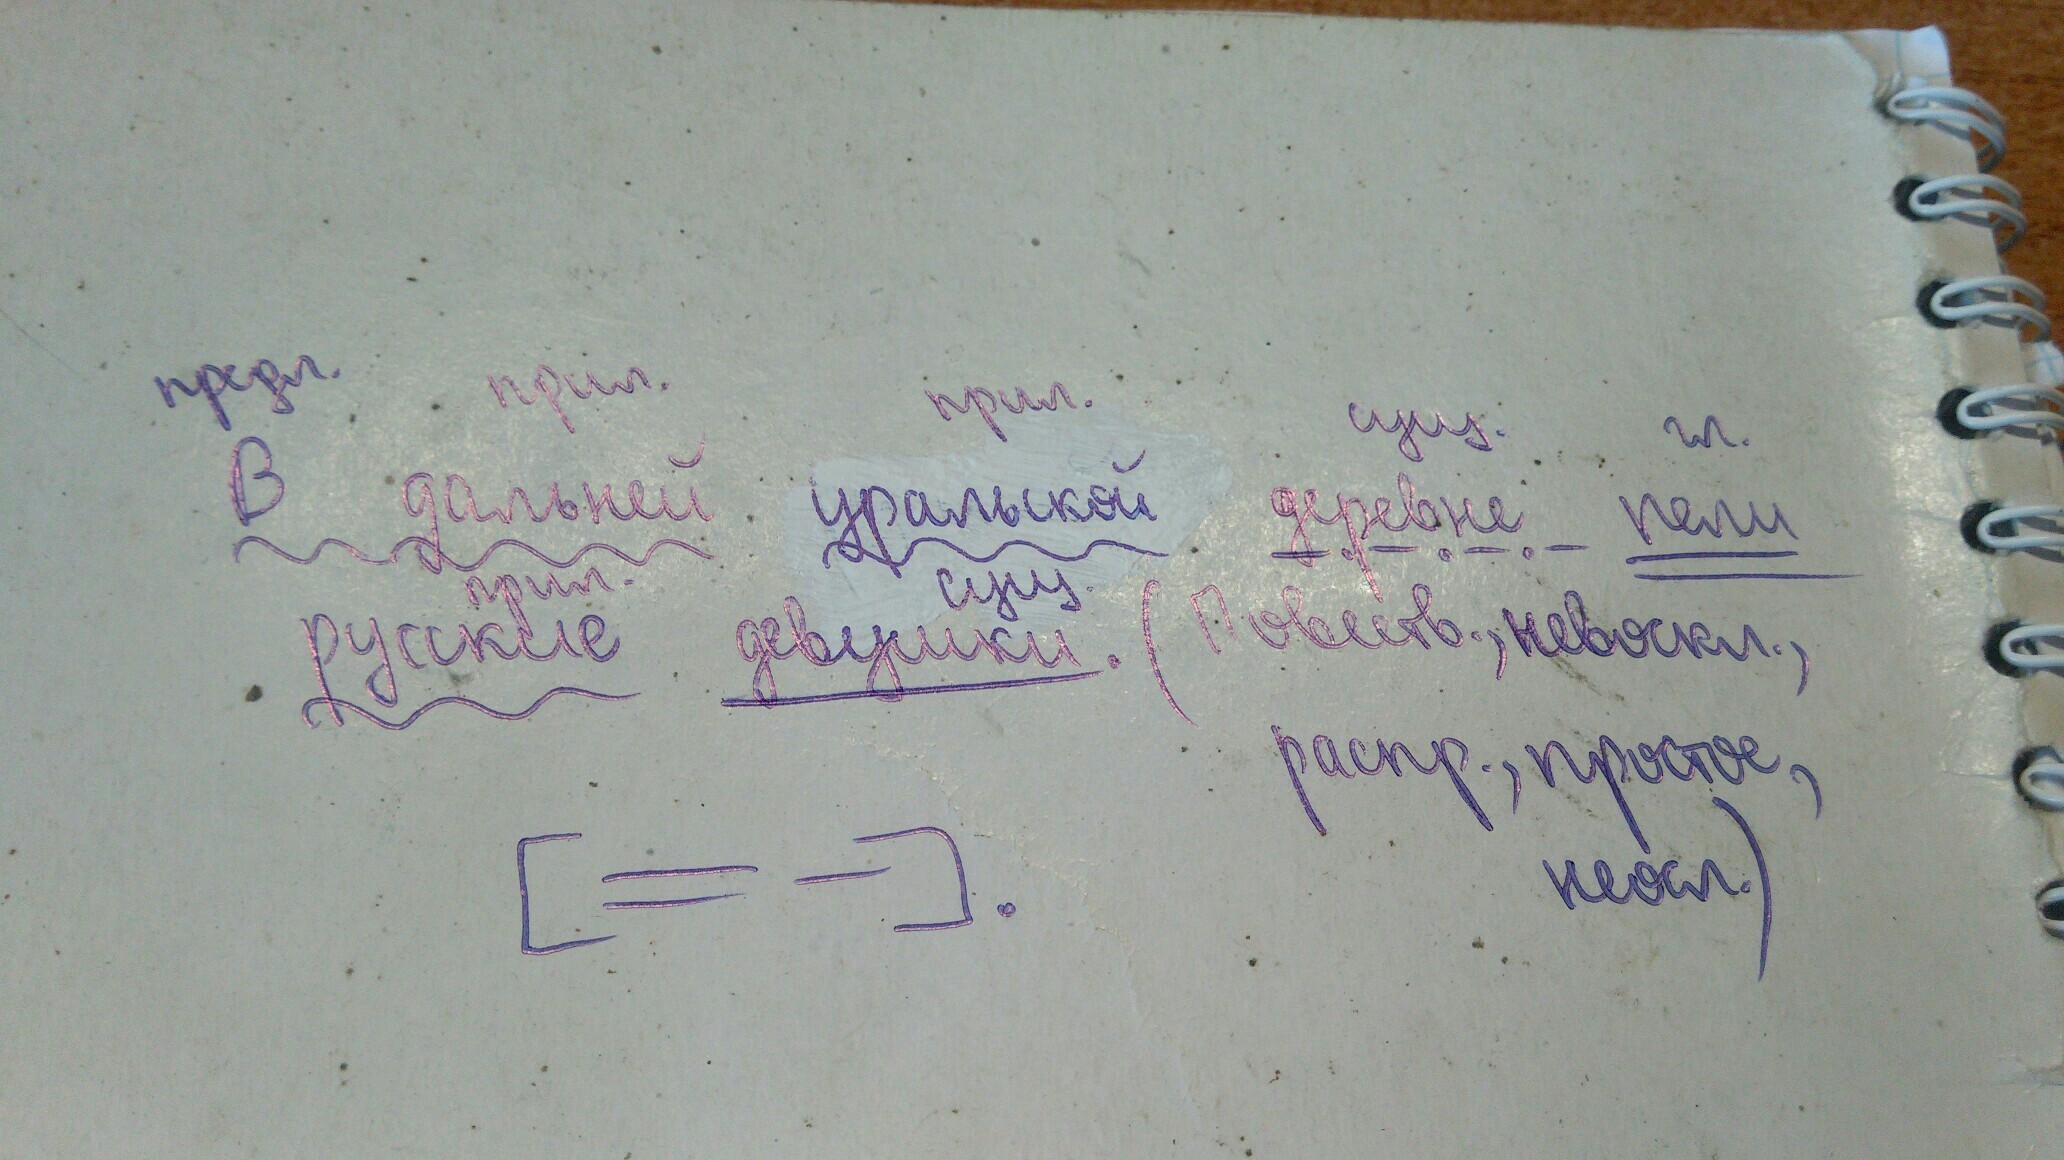 предл. прил. прил. сущ. гл.
В дальней уральской деревне пели
прил. сущ.
русские девушки. (Повеств., невоскл.,
распр., простое,
неосл.)
[═ –].